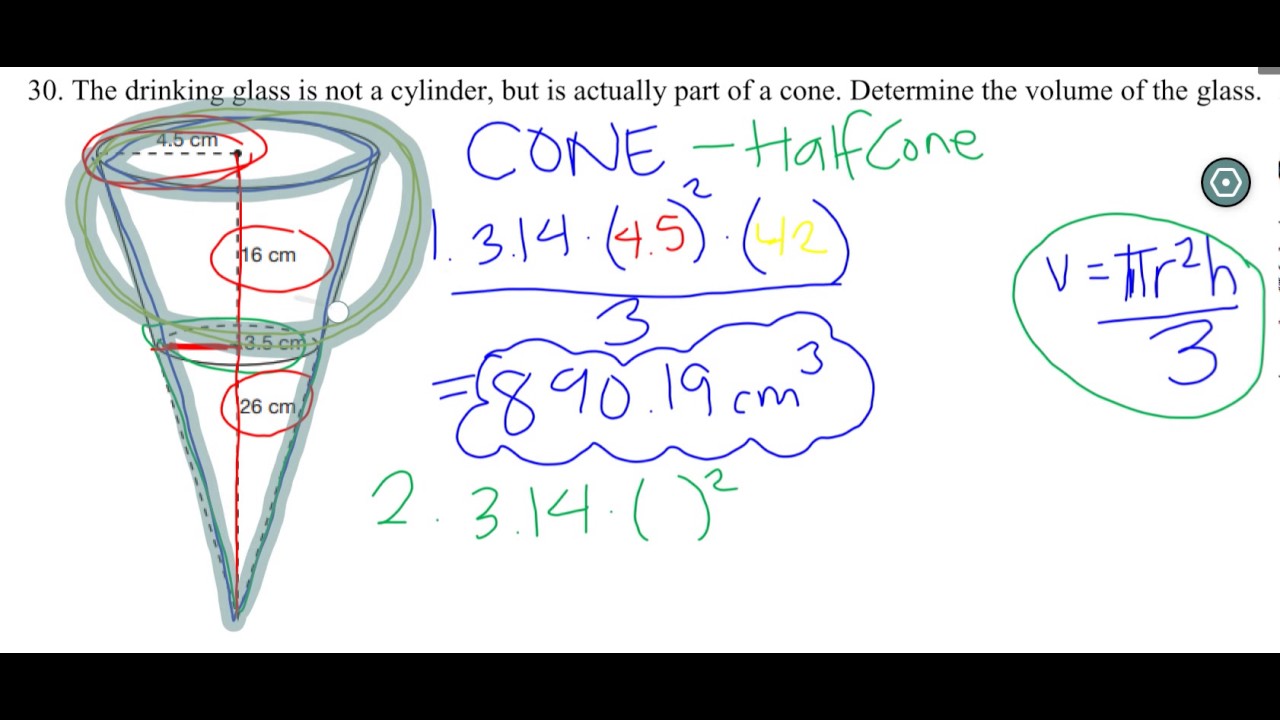 30. The drinking glass is not a cylinder, but is actually part of a cone. Determine the volume of the glass.
4.5 cm
CONE - Half Cone
1. 3.14 · (4.5)² · (42)
3
16 cm
V = πr²h
3
3.5 cm
= 890.19 cm³
26 cm
2. 3.14 · ( )²